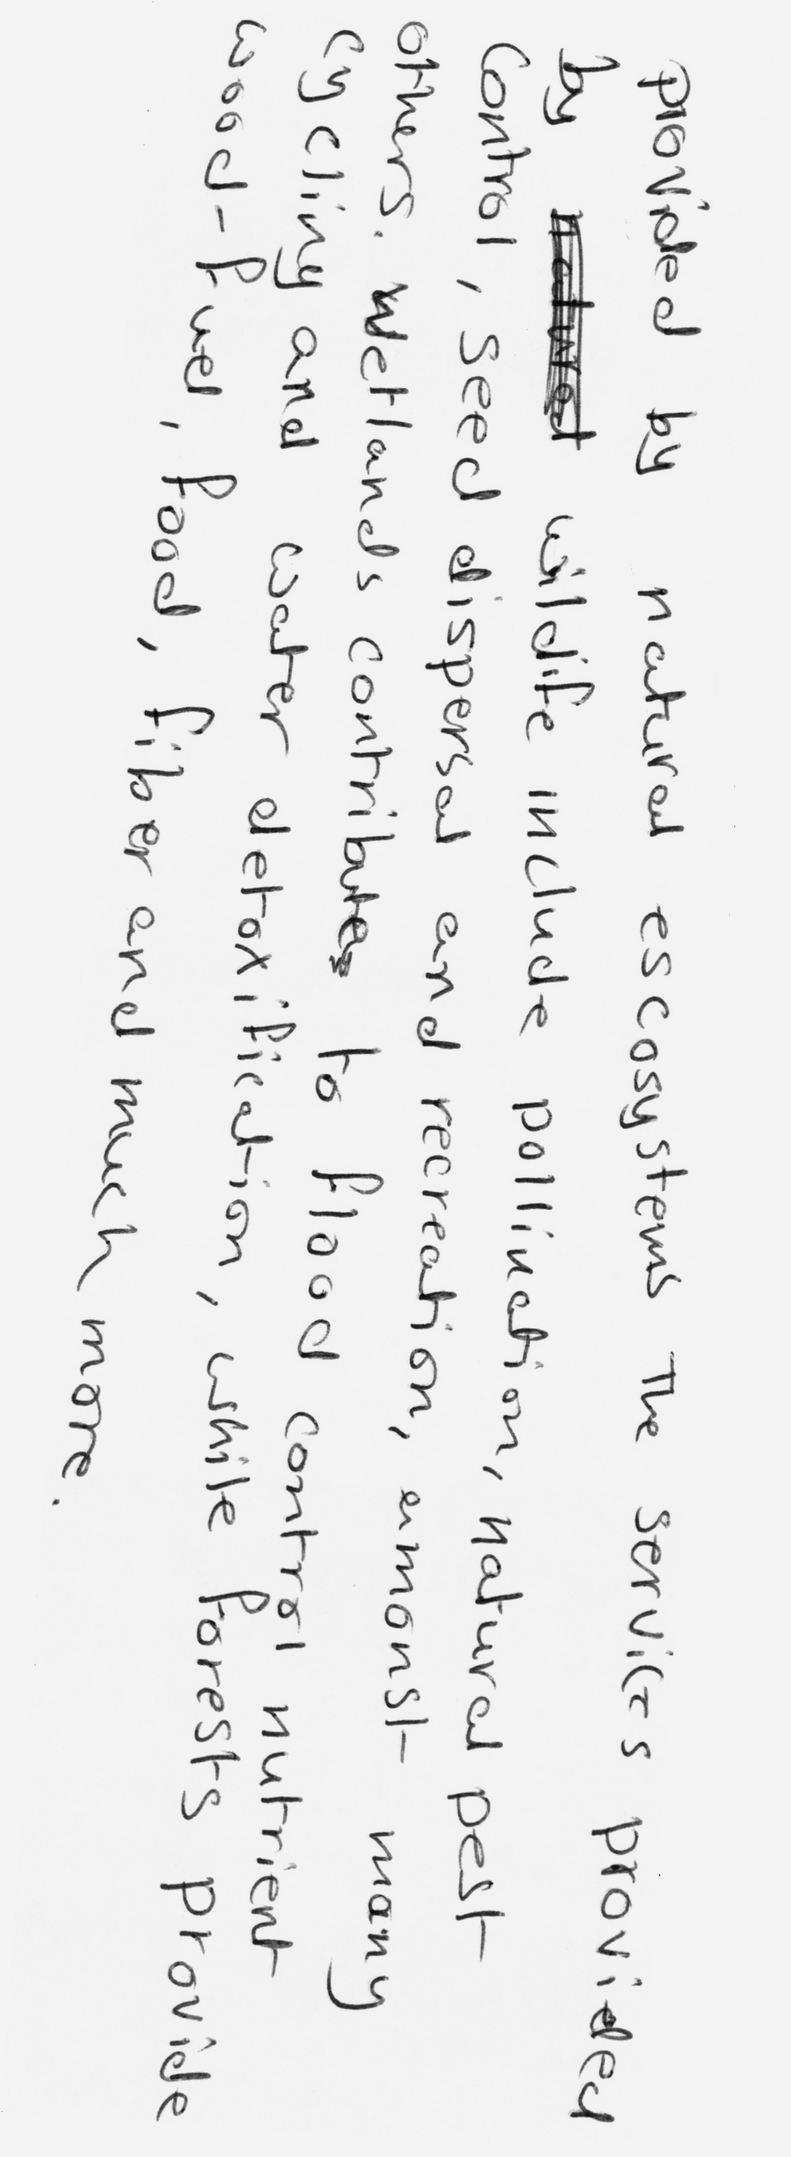 provided by natural escosystems The services provided
by wildife include pollination, natural pest
control, seed dispersal and recreation, amonst many
others. Wetlands contribute to flood control nutrient
cycling and water detoxification, while forests provide
wood-fuel, food, fiber and much more.